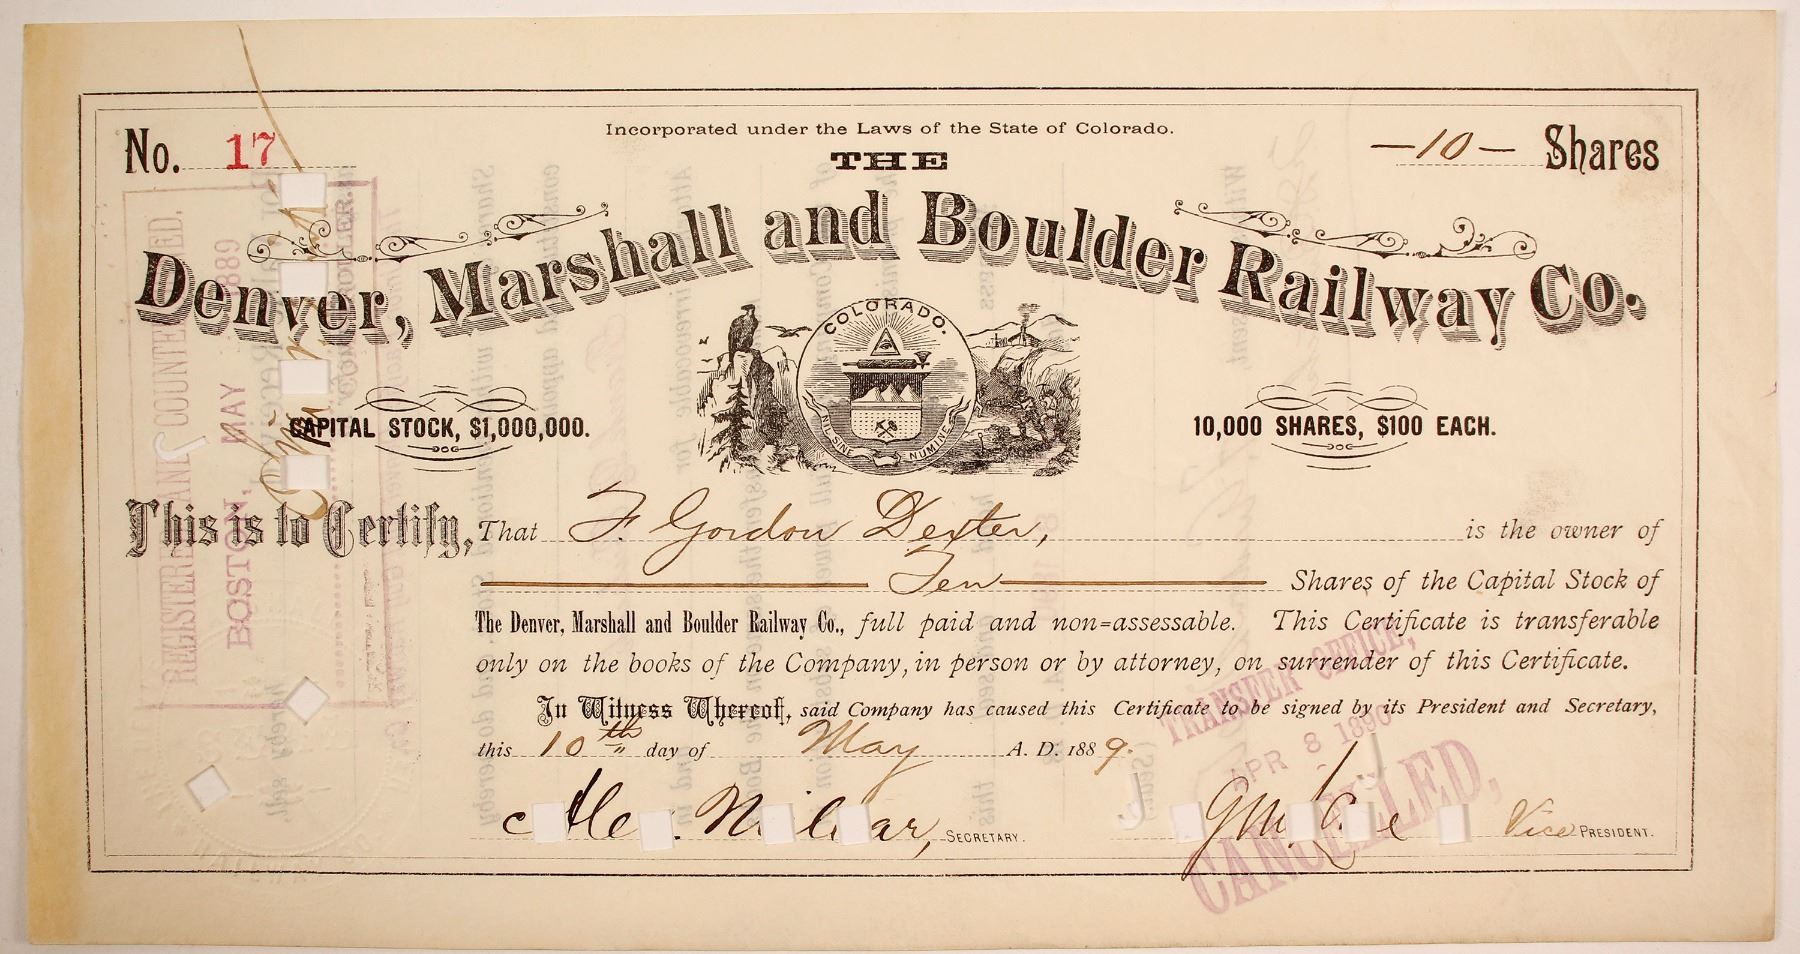 Incorporated under the Laws of the State of Colorado.
No. 17
—10— Shares
THE
Denver, Marshall and Boulder Railway Co.
COLORADO.
NIL SINE NUMINE
CAPITAL STOCK, $1,000,000.
10,000 SHARES, $100 EACH.
This is to Certify, That F. Gordon Dexter, is the owner of
Ten Shares of the Capital Stock of
The Denver, Marshall and Boulder Railway Co., full paid and non=assessable. This Certificate is transferable
only on the books of the Company, in person or by attorney, on surrender of this Certificate.
In Witness Whereof, said Company has caused this Certificate to be signed by its President and Secretary,
this 10th day of May A. D. 1889.
SECRETARY.
Vice PRESIDENT.
REGISTERED AND COUNTERSIGNED.
BOSTON, MAY 1889
TRANSFER OFFICE,
APR 8 1890
CANCELLED,